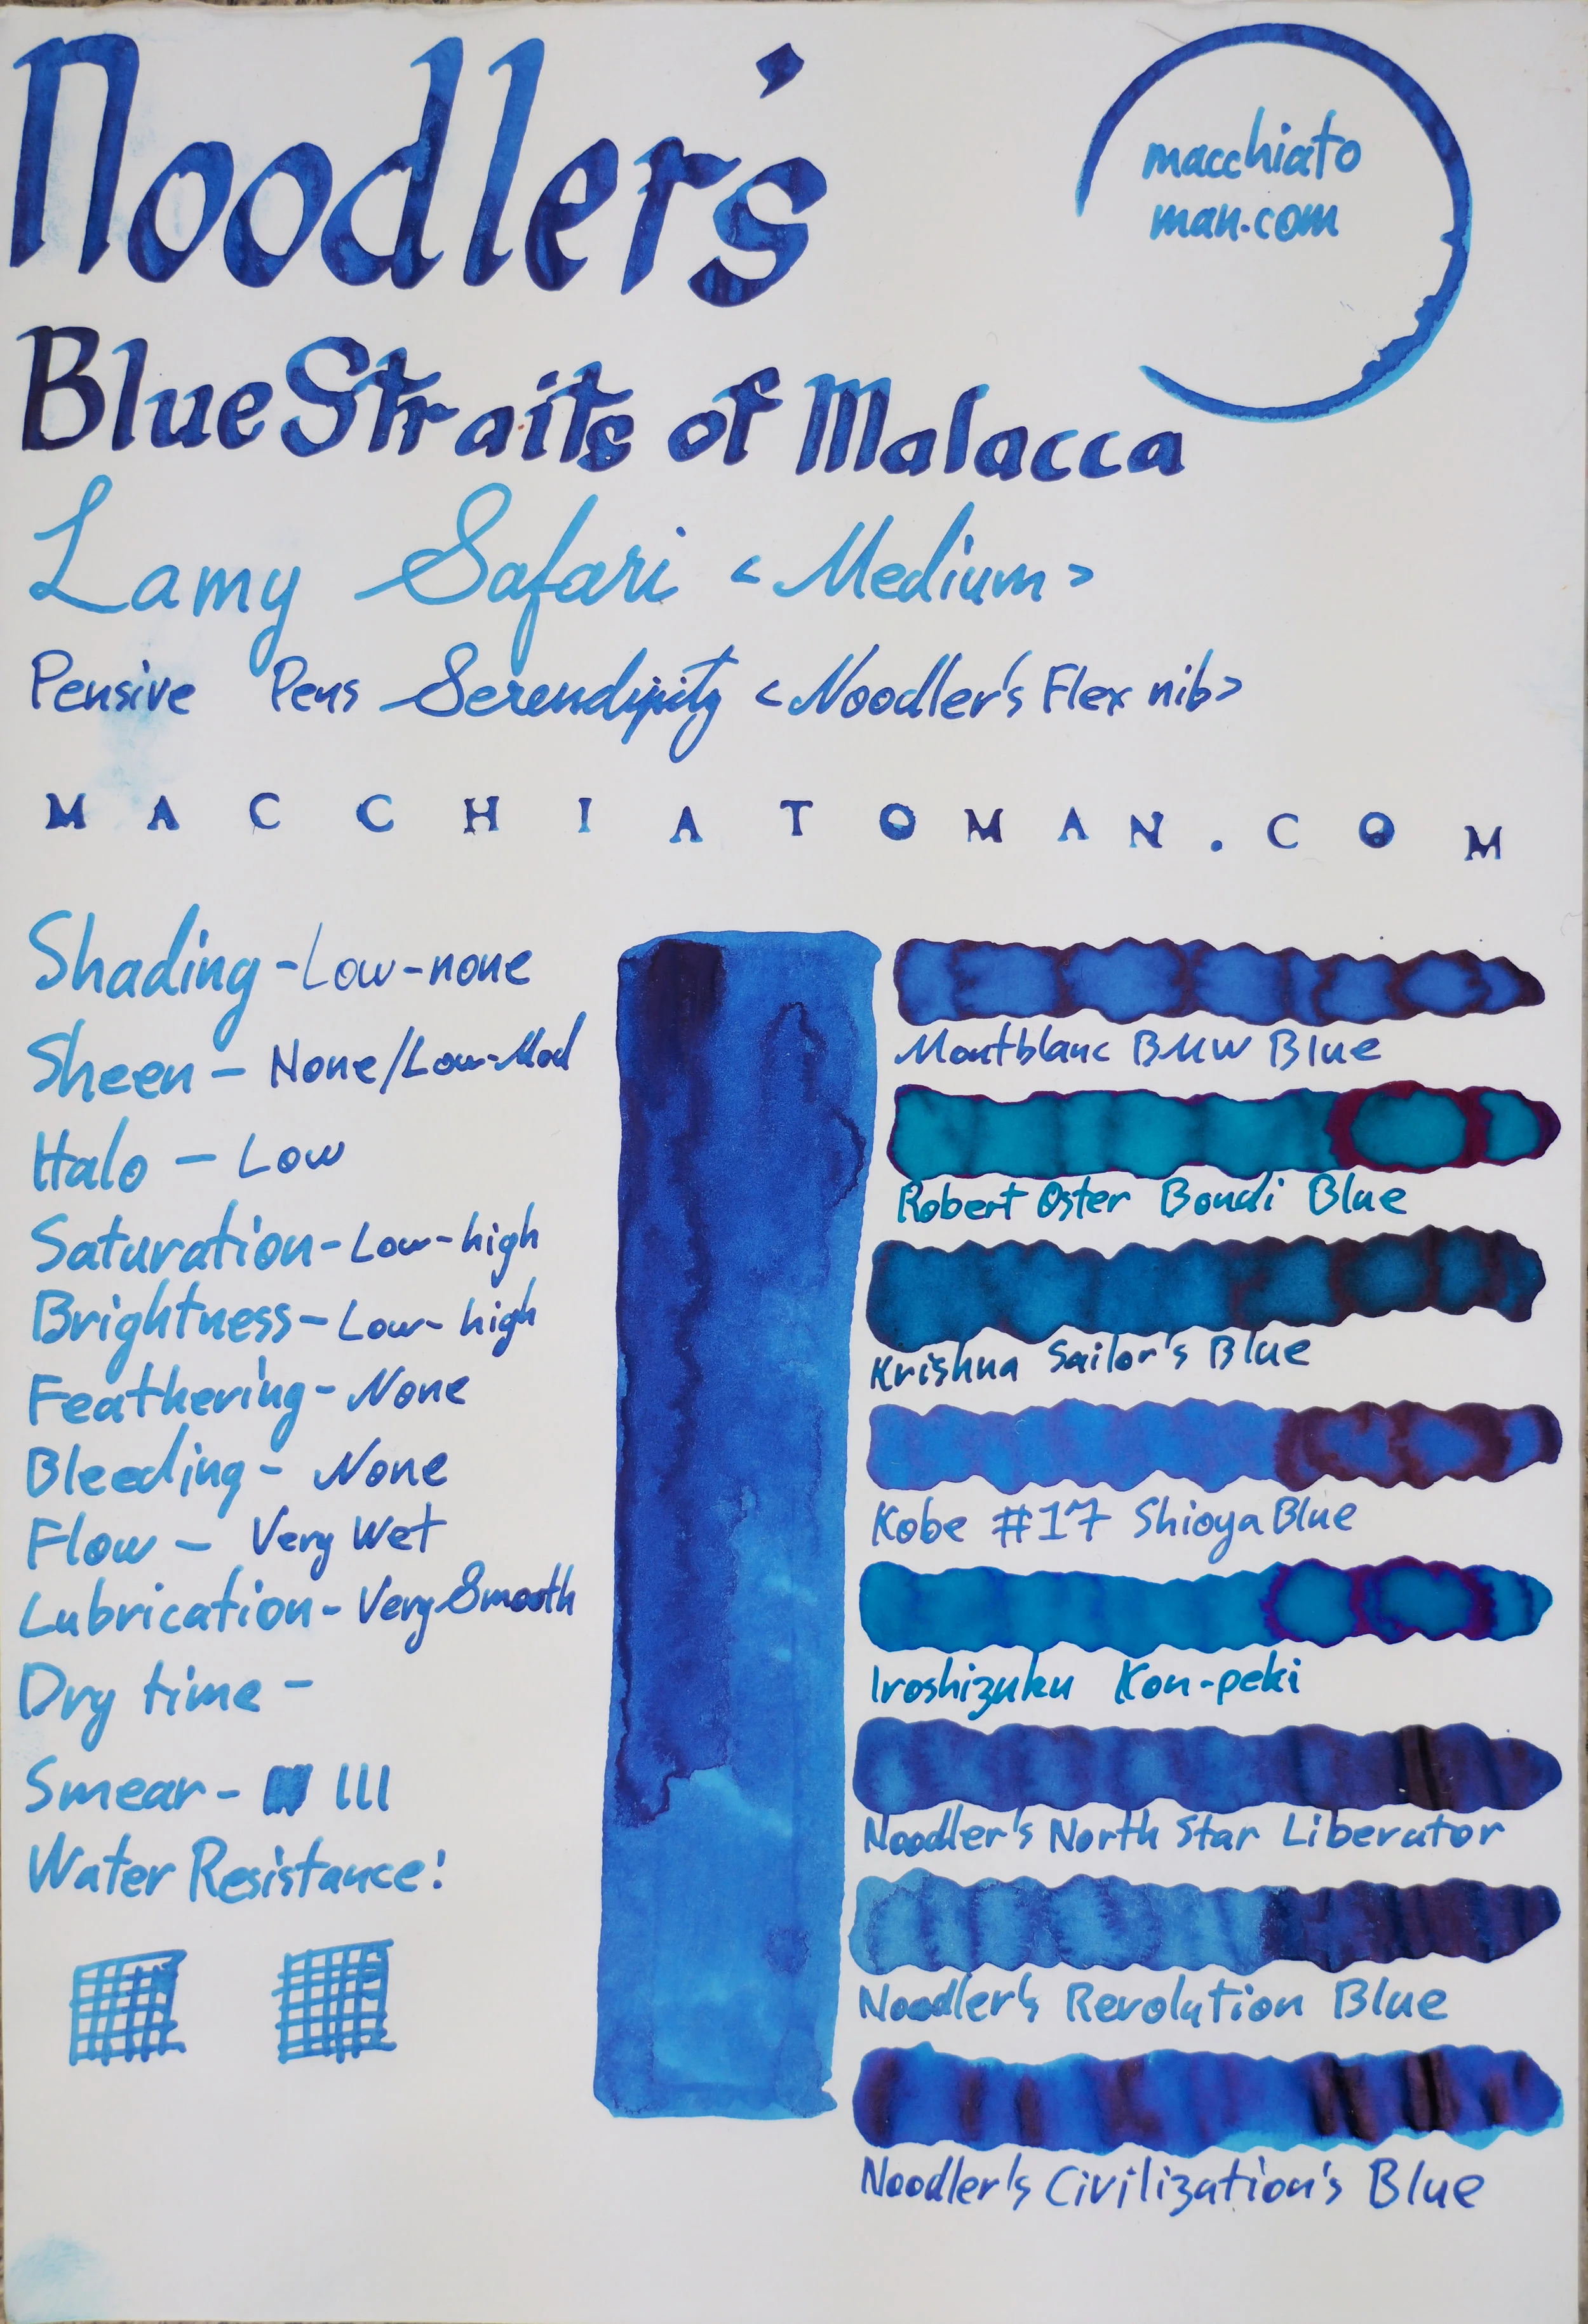 Noodler's
macchiato
man.com
Blue Straits of Malacca
Lamy Safari <Medium>
Pensive Pens Serendipity <Noodler's Flex nib>
MACCHIATOMAN.COM
Shading - Low-none
Sheen - None/Low-Mod
Halo - Low
Saturation - Low-high
Brightness - Low-high
Feathering - None
Bleeding - None
Flow - Very Wet
Lubrication - Very Smooth
Dry time -
Smear -
Water Resistance:
Montblanc BMW Blue
Robert Oster Bondi Blue
Krishna Sailor's Blue
Kobe #17 Shioya Blue
Iroshizuku Kon-peki
Noodler's North Star Liberator
Noodler's Revolution Blue
Noodler's Civilization's Blue